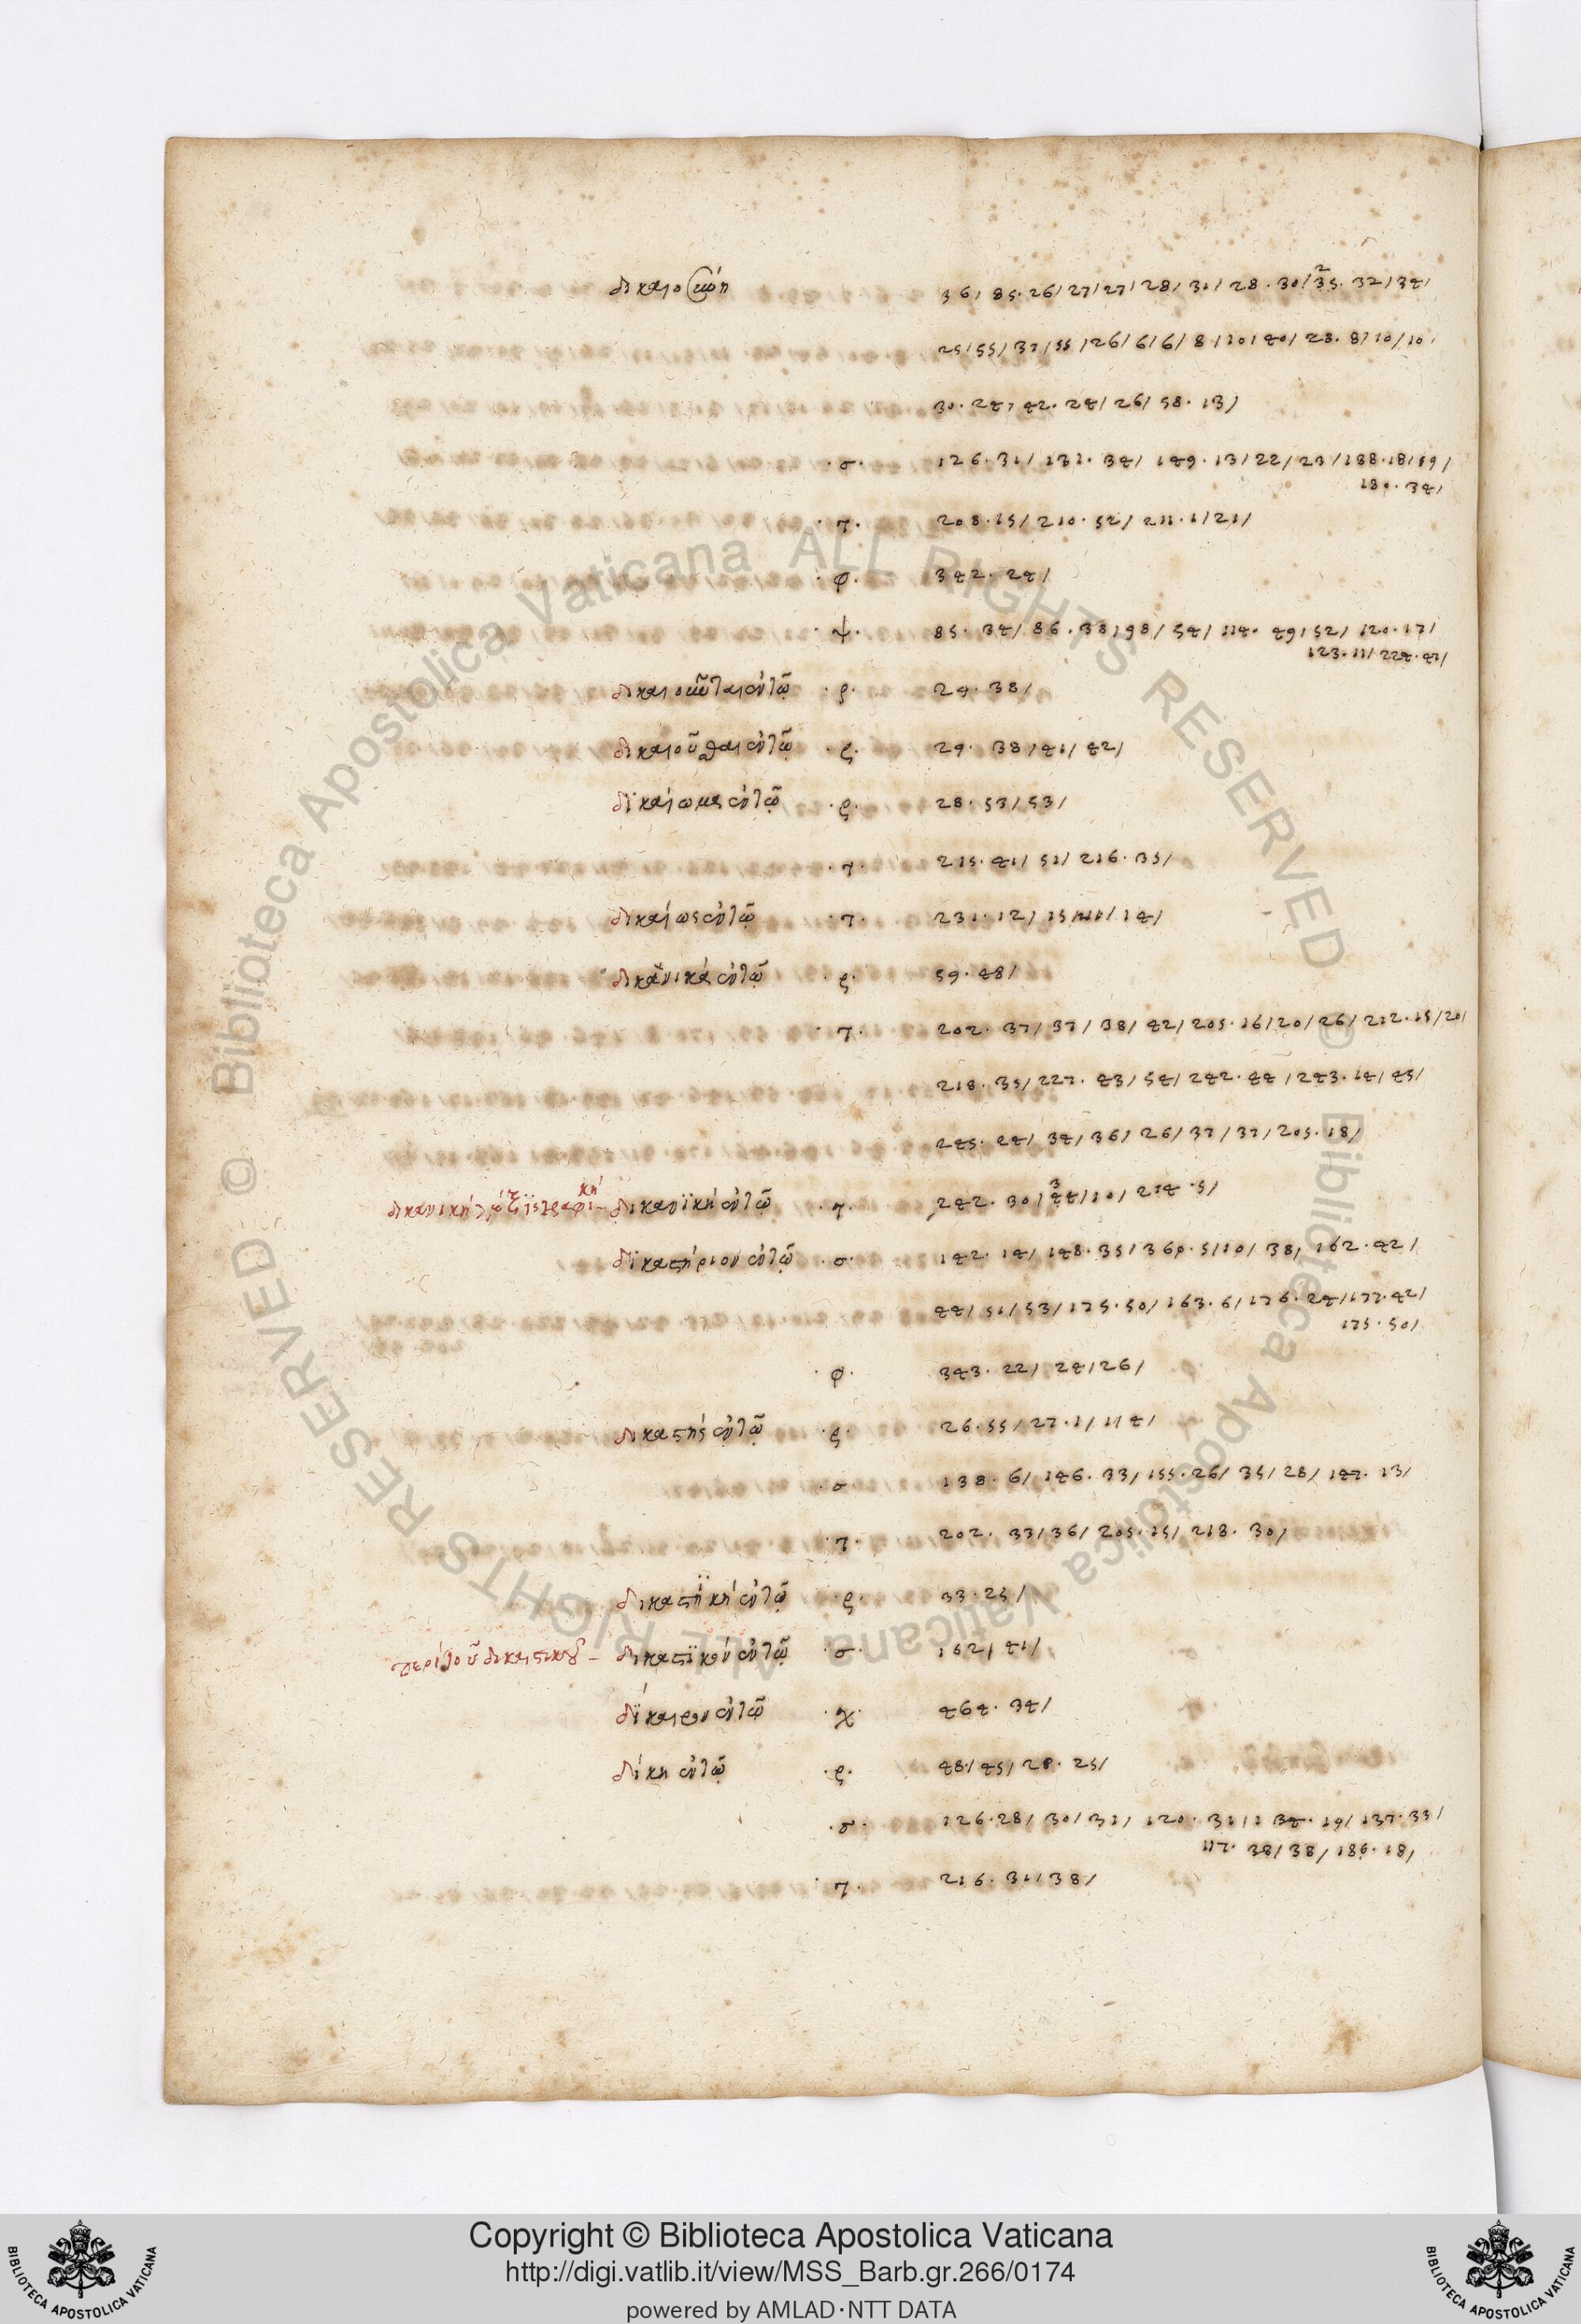 δικαιοσύνη 36/ 85. 26/ 27/ 27/ 28/ 31/ 28. 30/ 35. 32/ 34/
25/ 55/ 37/ 55/ 26/ 6/ 6/ 8/ 10/ 40/ 28. 8/ 10/ 10/
30. 24/ 42. 24/ 26/ 58. 13/
.σ. 126. 31/ 131. 34/ 149. 13/ 22/ 23/ 188. 18/ 19/
180. 34/
.τ. 208. 15/ 210. 52/ 211. 1/ 21/
.φ. 342. 24/
.ψ. 85. 34/ 86. 38/ 98/ 54/ 114. 49/ 52/ 120. 17/
123. 11/ 224. 41/
.ρ. 29. 38/
δικαιοῦσθαι ἐν τῷ .ρ. 29. 38/ 41/ 42/
δικαίωμα ἐν τῷ .ρ. 28. 53/ 53/
.τ. 215. 41/ 51/ 216. 35/
δικαίως ἐν τῷ .τ. 231. 12/ 14/
δικανικὰ ἐν τῷ .ρ. 59. 48/
.τ. 202. 37/ 37/ 38/ 42/ 205. 16/ 20/ 26/ 212. 15/ 20/
218. 35/ 227. 43/ 54/ 242. 44/ 243. 14/ 45/
245. 24/ 34/ 36/ 26/ 37/ 37/ 205. 18/
δικανικὴ δικανϊκὴ ἐν τῷ .τ. 242. 30/ 44/ 10/ 214. 5/
δικαστήριον ἐν τῷ .σ. 142. 14/ 148. 35/ 5/ 10/ 38/ 162. 42/
44/ 51/ 53/ 175. 50/ 163. 6/ 176. 24/ 177. 42/
175. 50/
.φ. 343. 22/ 24/ 26/
δικαστὴς ἐν τῷ .ρ. 26. 55/ 27. 1/
.σ. 138. 6/ 146. 33/ 155. 26/ 35/ 28/ 147. 13/
.τ. 202. 33/ 36/ 205. 15/ 218. 30/
δικαστϊκὴ ἐν τῷ .ρ. 33. 25/
περὶ τοῦ δικαστικοῦ – δικαστϊκὸν ἐν τῷ .σ. 162/ 41/
δίκαιρον ἐν τῷ .χ. 464. 34/
δίκη ἐν τῷ .ρ. 48/ 45/ 28. 25/
.σ. 126. 28/ 30/ 31/ 120. 31/ 134. 19/ 137. 33/
117. 38/ 38/ 186. 18/
.τ. 216. 31/ 38/
Copyright © Biblioteca Apostolica Vaticana
http://digi.vatlib.it/view/MSS_Barb.gr.266/0174
powered by AMLAD·NTT DATA
BIBLIOTECA APOSTOLICA VATICANA
BIBLIOTECA APOSTOLICA VATICANA
© Biblioteca Apostolica Vaticana ALL RIGHTS RESERVED
© Biblioteca Apostolica Vaticana ALL RIGHTS RESERVED